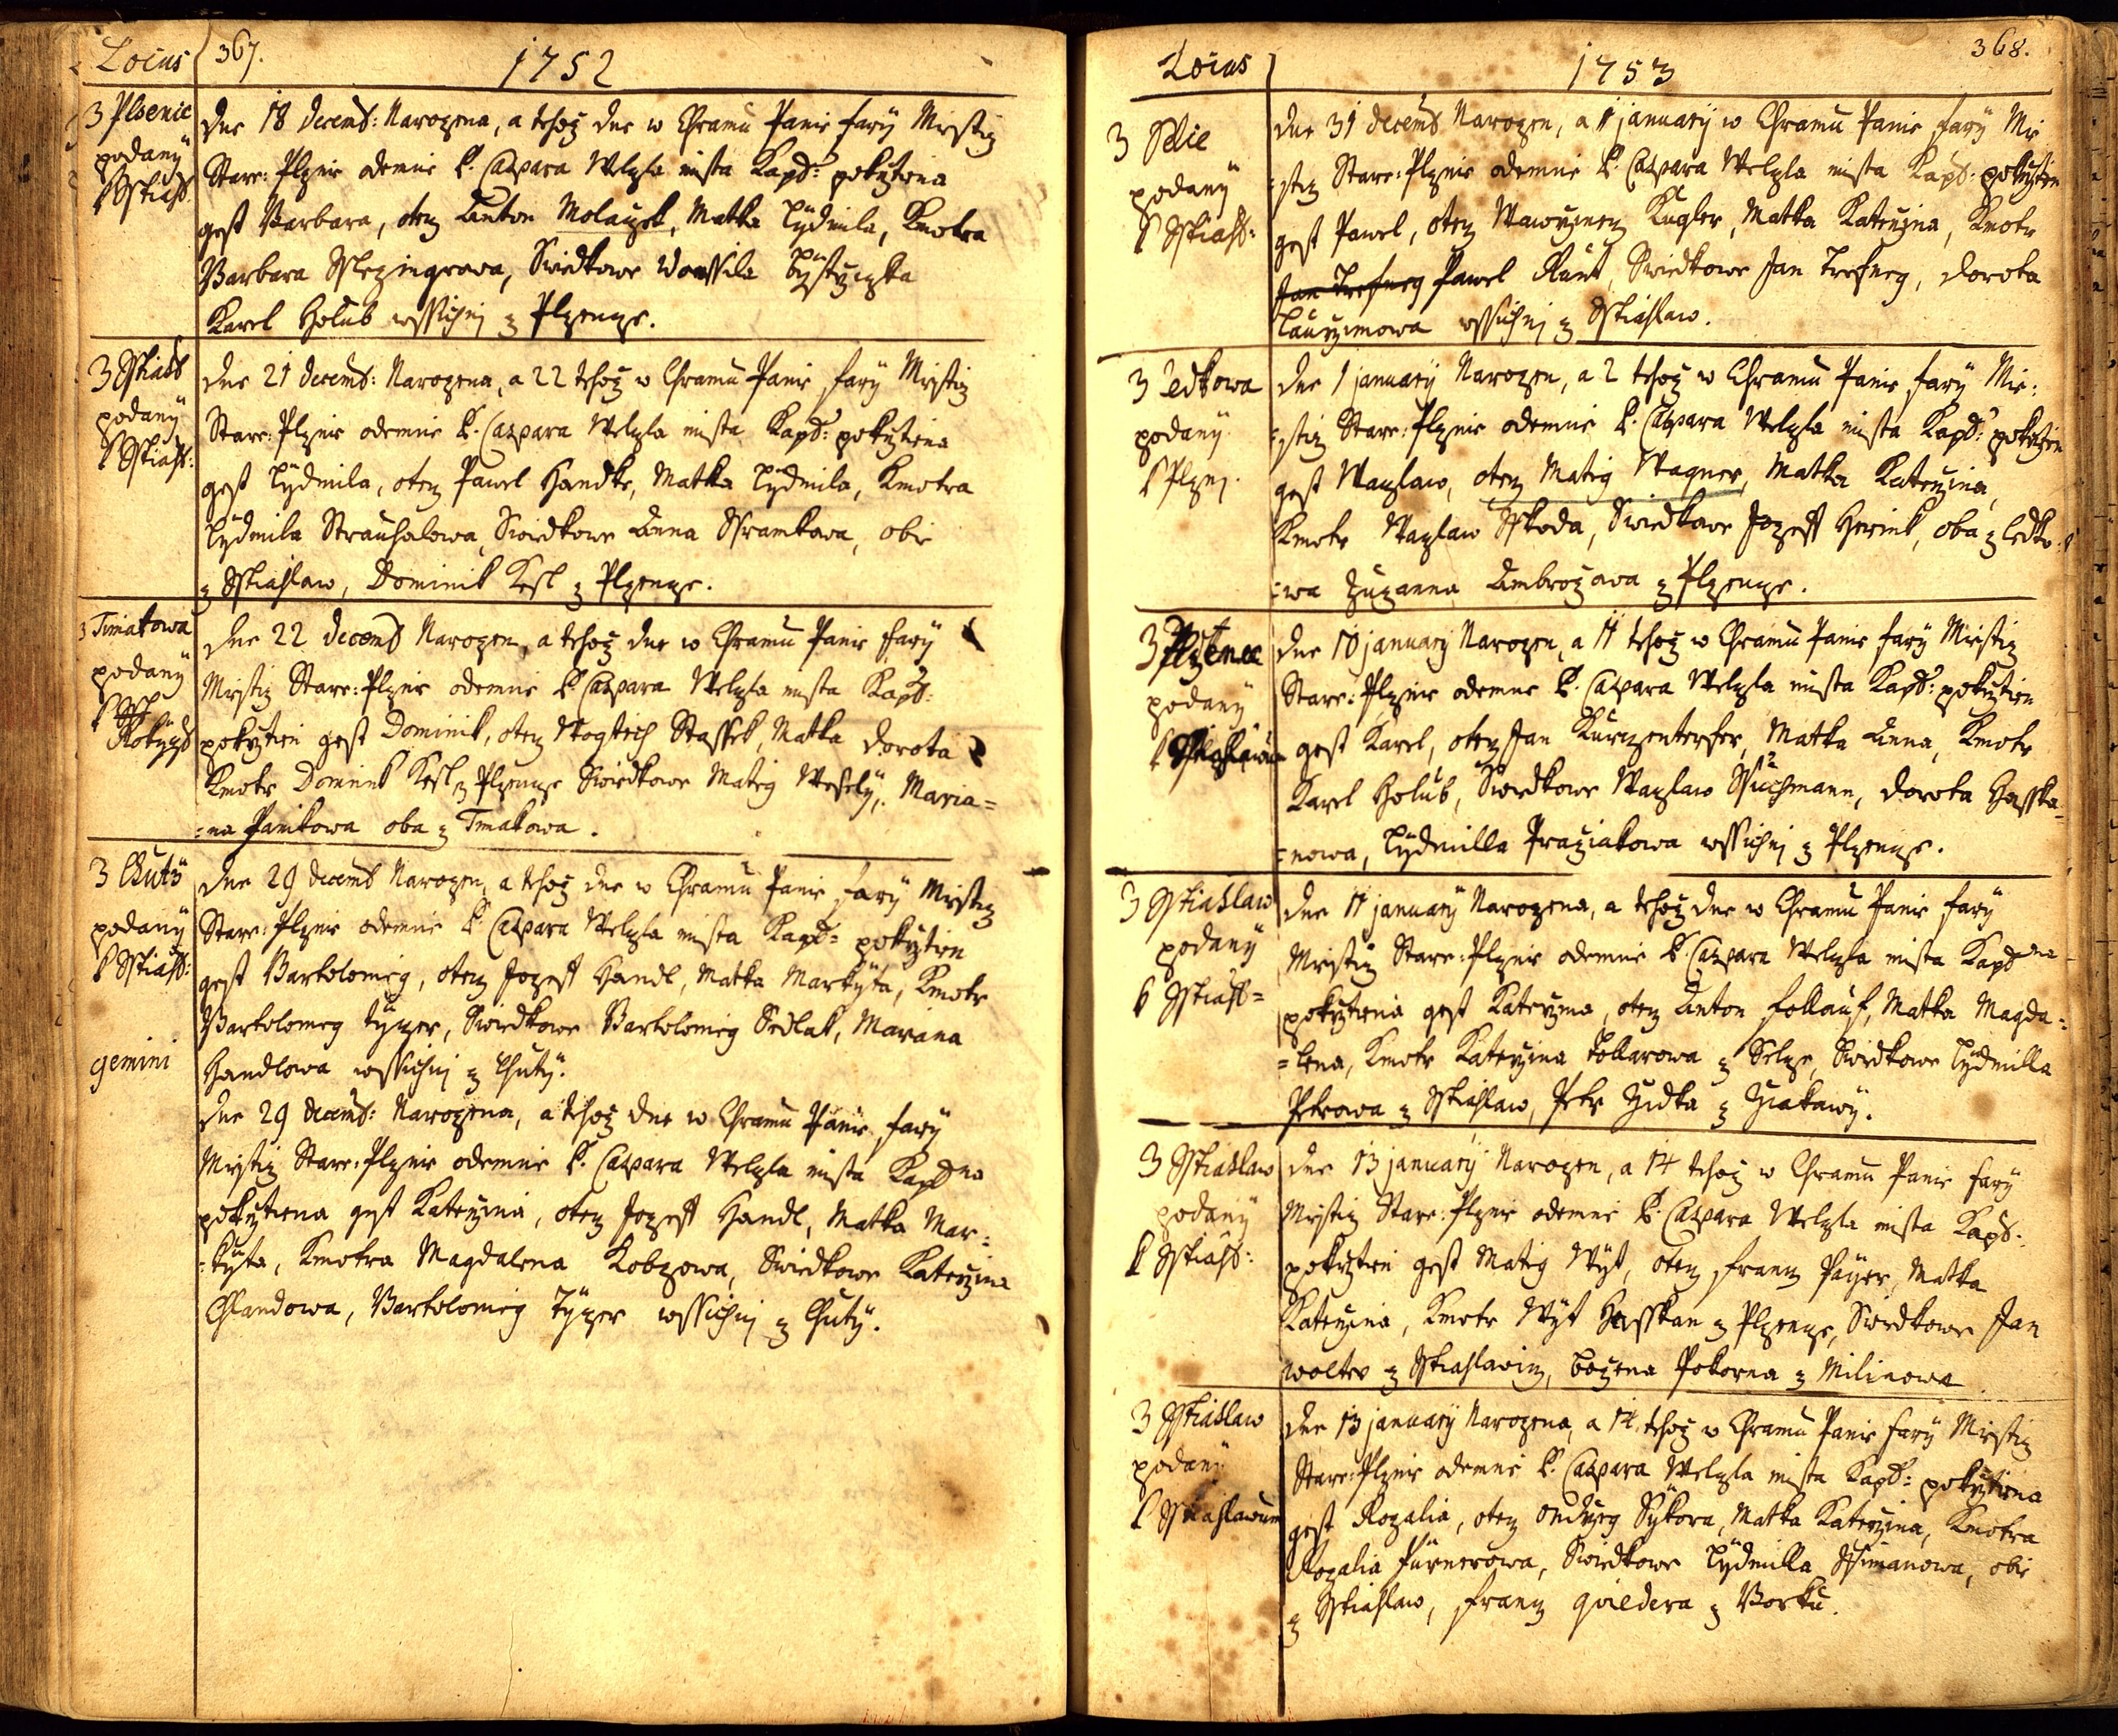 Locus 367.
1752
3 Plsenic
podanÿ
k Sstiahl.
dne 18 decemb: Narozena, a tehoz dne w Chramu Panie fary Miestiz
Stare: Plznie odemnie P. Caspara Welzla mista Kapl: pokrztiena
gest Barbara, otez Anton Molauzek, Matka Lÿdmila, Kmotra
Barbara Sslezingrowa, Swiedkowe Worssila
Karel Holub wssichni z Plzenze.
3 Sstiahl
podanÿ
k Sstiahl:
dne 21 decemb: Narozena, a 22 tehoz w Chramu Panie fary Miestiz
Stare: Plznie odemnie P. Caspara Welzla mista Kapl: pokrztiena
gest Lÿdmila, otez Pawel Handke, Matka Lÿdmila, Kmotra
Lÿdmila Strauhalowa, Swiedkowe Anna Sframkowa, obie
z Sstiahlaw, Dominik Kesl z Plzenze.
3 Timakowa
podanÿ
k
Rokyzs
dne 22 decemb Narozen, a tehoz dne w Chramu Panie fary
Miestiz Stare: Plznie odemnie P. Caspara Welzla mista Kapl:
pokrztien gest Dominik, otez Wogtiech Stassek, Matka Dorota
Kmotr Dominik Kesl z Plzenze Swiedkowe Matieg Weselÿ, Maria=
=na Panikowa oba z Timakowa.
3 Chutÿ
podanÿ
k Sstiahl:
dne 29 decemb Narozen, a tehoz dne w Chramu Panie fary Miestiz
Stare: Plznie odemnie P. Caspara Welzla mista Kapl= pokrztien
gest Bartolomieg, otez Jozeff Handl, Matka Markÿta, Kmotr
Bartolomeg Tÿzer, Swiedkowe Bartolomieg Sedlak, Mariana
Handlowa wssichni z Chutÿ.
gemini
dne 29 decemb: Narozena, a tehoz dne w Chramu Panie fary
Miestiz Stare: Plznie odemnie P. Caspara Welzla mista Kaplna
pokrztiena gest Katerzina, otez Jozeff Handl, Matka Mar:
:kÿta, Kmotra Magdalena Kobzowa, Swiedkowe Katerzina
Chlandowa, Bartolomieg Tÿzer wssichni z Chutÿ.
Locus
1753
368.
3 Selic
podanÿ
k Sstiahl:
dne 31 decemb Narozen, a 1 january w Chramu Panie fary Mie
:stiz Stare: Plznie odemnie P. Caspara Welzla mista Kapl: pokrztien
gest Pawel, otez Wawrzinez Kugler, Matka Katerzina, Kmotr
Jan Trefneg Pawel Raut, Swiedkowe Jan Trefneg, Dorota
Laurzimowa wssichni z Sstiahlaw.
3 Ledkowa
podanÿ
k Plzni.
dne 1 january Narozen, a 2 tehoz w Chramu Panie fary Mie:
:stiz Stare: Plznie odemnie P. Caspara Welzla mista Kapl: pokrztien
gest Wazlaw, otez Matieg Wagner, Matka Katerzina,
Kmotr Wazlaw Sskoda, Swiedkowe Jozeff Herink, oba z Ledko:
:wa Zuzanna Ambrozowa z Plzenze.
3 Plzenec
podanÿ
k Sstiahlawum
dne 10 january Narozen, a 11 tehoz w Chramu Panie fary Miestiz
Stare: Plznie odemne P. Caspara Welzla mista Kapl: pokrztien
gest Karel, otez Jan Kurzenterfer, Matka Anna, Kmotr
Karel Holub, Swiedkowe Wazlaw Ssuchmann, Dorota Hasska=
=nowa, Lÿdmilla Praziakowa wssichni z Plzenze.
3 Sstiahlaw
podanÿ
k Sstiahl=
dne 11 january Narozena, a tehoz dne w Chramu Panie fary
Miestiz Stare: Plznie odemnie P. Caspara Welzla mista Kaplna
pokrztiena gest Katerzina, otez Anton Follauf, Matka Magda=
=lena, Kmotr Katerzina Kollarowa z Selze, Swiedkowe Lÿdmilla
Petrowa z Sstiahlaw, Petr Zidka z Ziakawÿ.
3 Sstiahlaw
podanÿ
k Sstiahl:
dne 13 january Narozen, a 14 tehoz w Chramu Panie fary
Miestiz Stare: Plznie odemnie P. Caspara Welzla mista Kapl:
pokrztien gest Matieg Wÿt, otez Franz Paÿer, Matka
Katerzina, Kmotr Wÿt Hasskan z Plzenze, Swiedkowe Jan
Wolter z Sstiahlawiz, Bozena Pokorna z Milinowa
3 Sstiahlaw
podanÿ
k Sstiahlawum
dne 13 january Narozena, a 14 tehoz w Chramu Panie fary Miestiz
Stare: Plznie odemnie P. Caspara Welzla mista Kapl: pokrztiena
gest Rozalia, otez Ondrzeg Sÿkora, Matka Katerzina, Kmotra
Rozalia Furnerowa, Swiedkowe Lÿdmilla Ssimanowa, obie
z Sstiahlaw, Franz Qviedera z Borku.